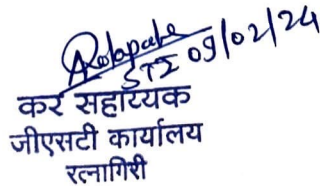 STI 09/02/24
कर सहाय्यक
जीएसटी कार्यालय
रत्नागिरी